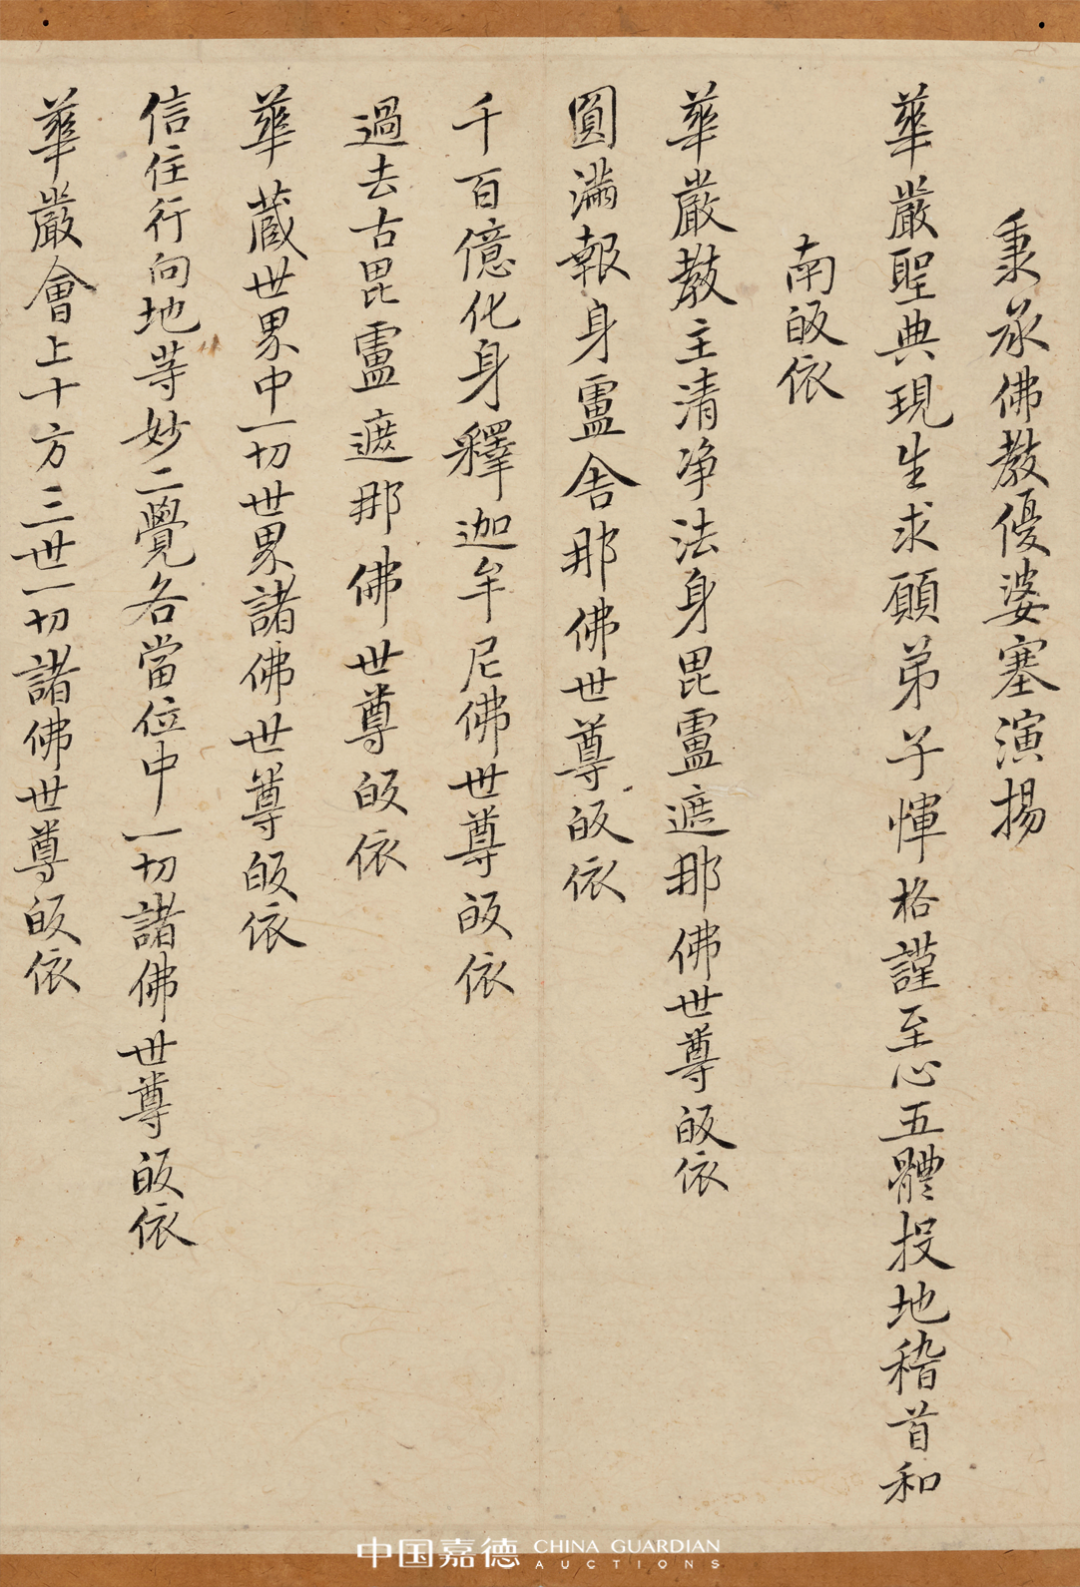 秉承佛教優婆塞演揚
華嚴聖典現生求願弟子惲格謹至心五體投地稽首和
南皈依
華嚴教主清净法身毘盧遮那佛世尊皈依
圓滿報身盧舍那佛世尊皈依
千百億化身釋迦牟尼佛世尊皈依
過去古毘盧遮那佛世尊皈依
華蔵世界中一切世界諸佛世尊皈依
信住行向地等妙二覺各當位中一切諸佛世尊皈依
華嚴會上十方三世一切諸佛世尊皈依
中国嘉德 CHINA GUARDIAN AUCTIONS